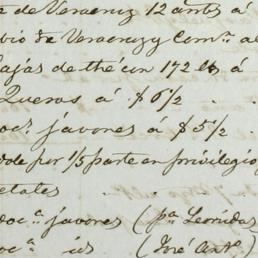 de Veracruz 12 antes á
bio de Veracruz y Comon al
Cajas de thé con 172 lb á
Queros á $ 6 1/2 . .
doc.s javones á $ 5 1/2
dole por 1/5 parte en privilegio
etales
doc.a javones (pa Leonidas
oc.a id (José Anto.)